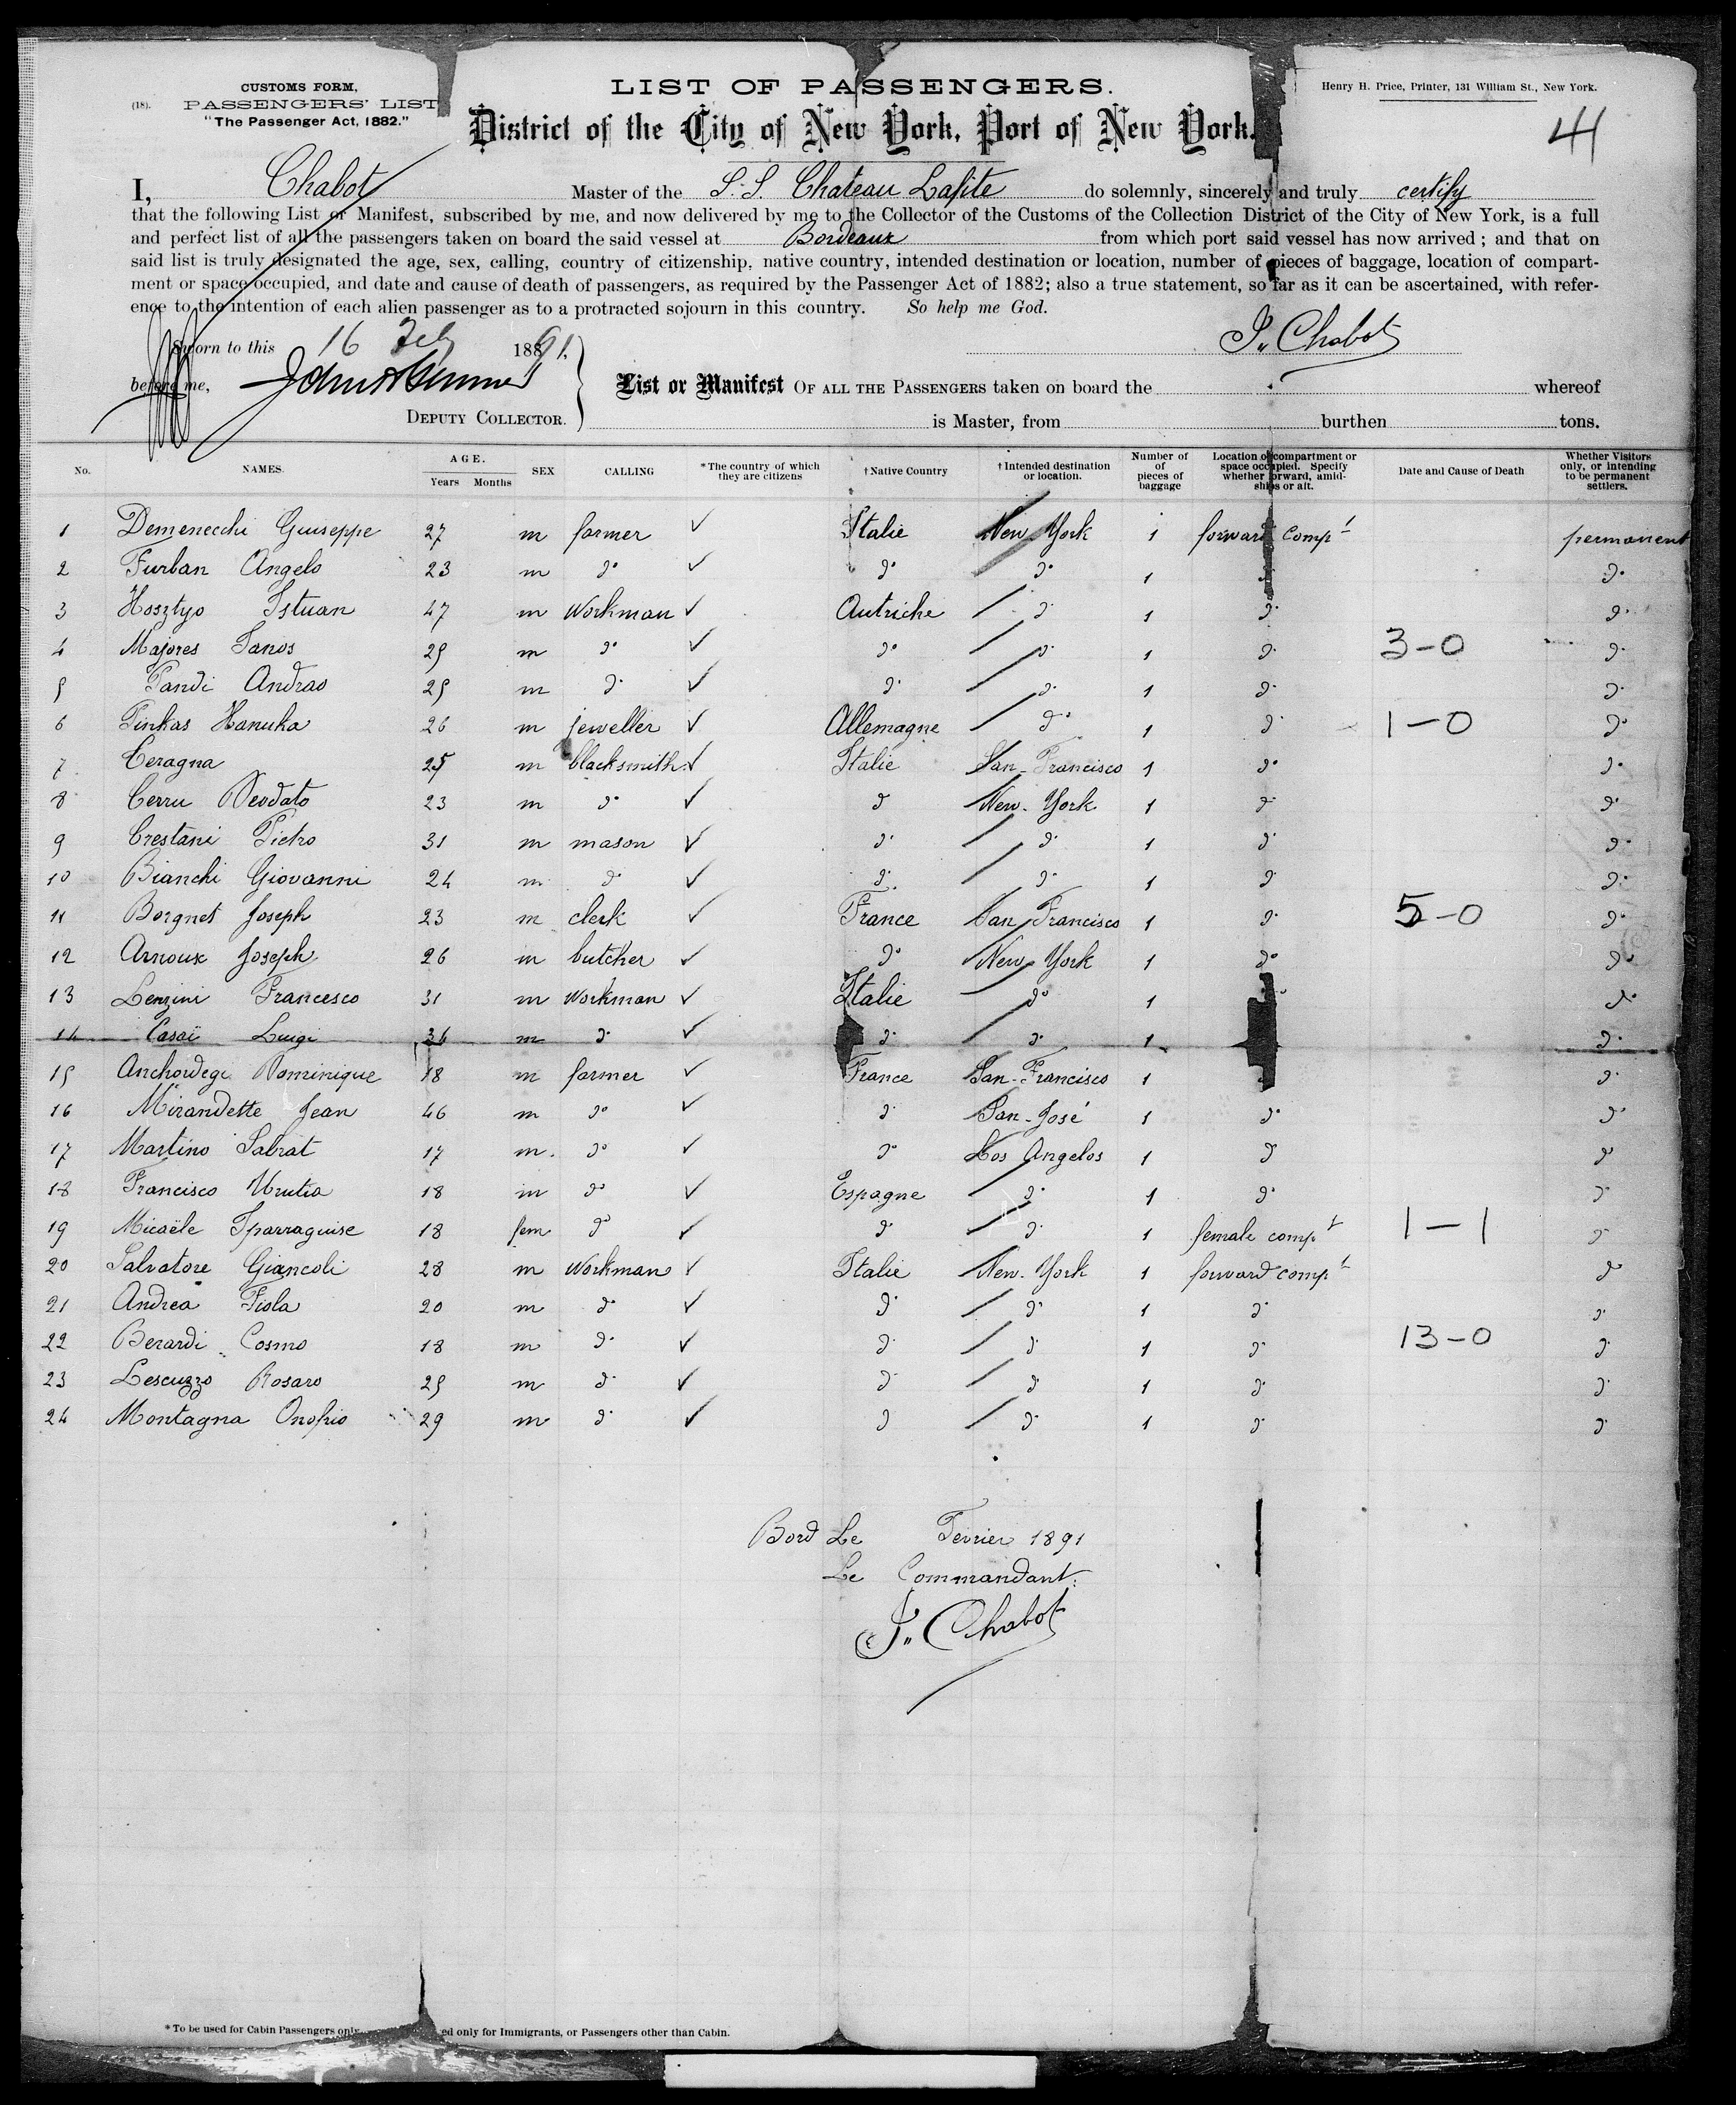 CUSTOMS FORM,
(18). PASSENGERS' LIST
"The Passenger Act, 1882."
LIST OF PASSENGERS.
District of the City of New York, Port of New York.
Henry H. Price, Printer, 131 William St., New York.
41
I, Chabot Master of the S.S. Chateau Lafite do solemnly, sincerely and truly certify
that the following List or Manifest, subscribed by me, and now delivered by me to the Collector of the Customs of the Collection District of the City of New York, is a full
and perfect list of all the passengers taken on board the said vessel at Bordeaux from which port said vessel has now arrived; and that on
said list is truly designated the age, sex, calling, country of citizenship, native country, intended destination or location, number of pieces of baggage, location of compart-
ment or space occupied, and date and cause of death of passengers, as required by the Passenger Act of 1882; also a true statement, so far as it can be ascertained, with refer-
ence to the intention of each alien passenger as to a protracted sojourn in this country. So help me God.
Sworn to this 16 Feb 1891. J. Chabot
before me,
DEPUTY COLLECTOR.
List or Manifest OF ALL THE PASSENGERS taken on board the whereof
is Master, from burthen tons.
No. NAMES. AGE. Years Months SEX CALLING *The country of which they are citizens †Native Country †Intended destination or location. Number of pieces of baggage Location of compartment or space occupied. Specify whether forward, amidships or aft. Date and Cause of Death Whether Visitors only, or intending to be permanent settlers.
1 Demenecchi Giuseppe 27 m farmer ✓ Italie New York 1 forward compt permanent
2 Furban Angelo 23 m do ✓ do do 1 do
3 Hosztyo Istuan 47 m Workman ✓ Autriche do 1 do do
4 Majores Janos 29 m do ✓ do do 1 do 3-0 do
5 Pandi Andras 29 m do ✓ do do 1 do do
6 Pinkas Hanuka 26 m jeweller ✓ Allemagne do 1 do 1-0 do
7 Ceragna 25 m blacksmith ✓ Italie San Francisco 1 do do
8 Cerru Deodato 23 m do ✓ do New York 1 do do
9 Crestani Pietro 31 m mason ✓ do do 1 do do
10 Bianchi Giovanni 24 m do ✓ do do 1 do do
11 Borgnet Joseph 23 m clerk ✓ France San Francisco 1 do 5-0 do
12 Arnoux Joseph 26 m butcher ✓ do New York 1 do do
13 Lenzini Francesco 31 m Workman ✓ Italie do 1 do
14 Casai Luigi 36 m do ✓ do do 1 do
15 Anchordegi Dominique 18 m farmer ✓ France San-Francisco 1 do
16 Mirandette Jean 46 m do ✓ do San-José 1 do do
17 Martino Sabrat 17 m. do ✓ do Los Angelos 1 do do
18 Francisco Urutia 18 m do ✓ Espagne do 1 do do
19 Micaële Iparraguise 18 fem do ✓ do do 1 female compt 1-1 do
20 Salvatore Giancoli 28 m Workman ✓ Italie New York 1 forward compt do
21 Andrea Fiola 20 m do ✓ do do 1 do do
22 Berardi Cosmo 18 m do ✓ do do 1 do 13-0 do
23 Lescuzzo Rosaro 29 m do ✓ do do 1 do do
24 Montagna Onofrio 29 m do ✓ do do 1 do do
Bord Le Fevrier 1891
Le Commandant:
J. Chabot
*To be used for Cabin Passengers only. ed only for Immigrants, or Passengers other than Cabin.